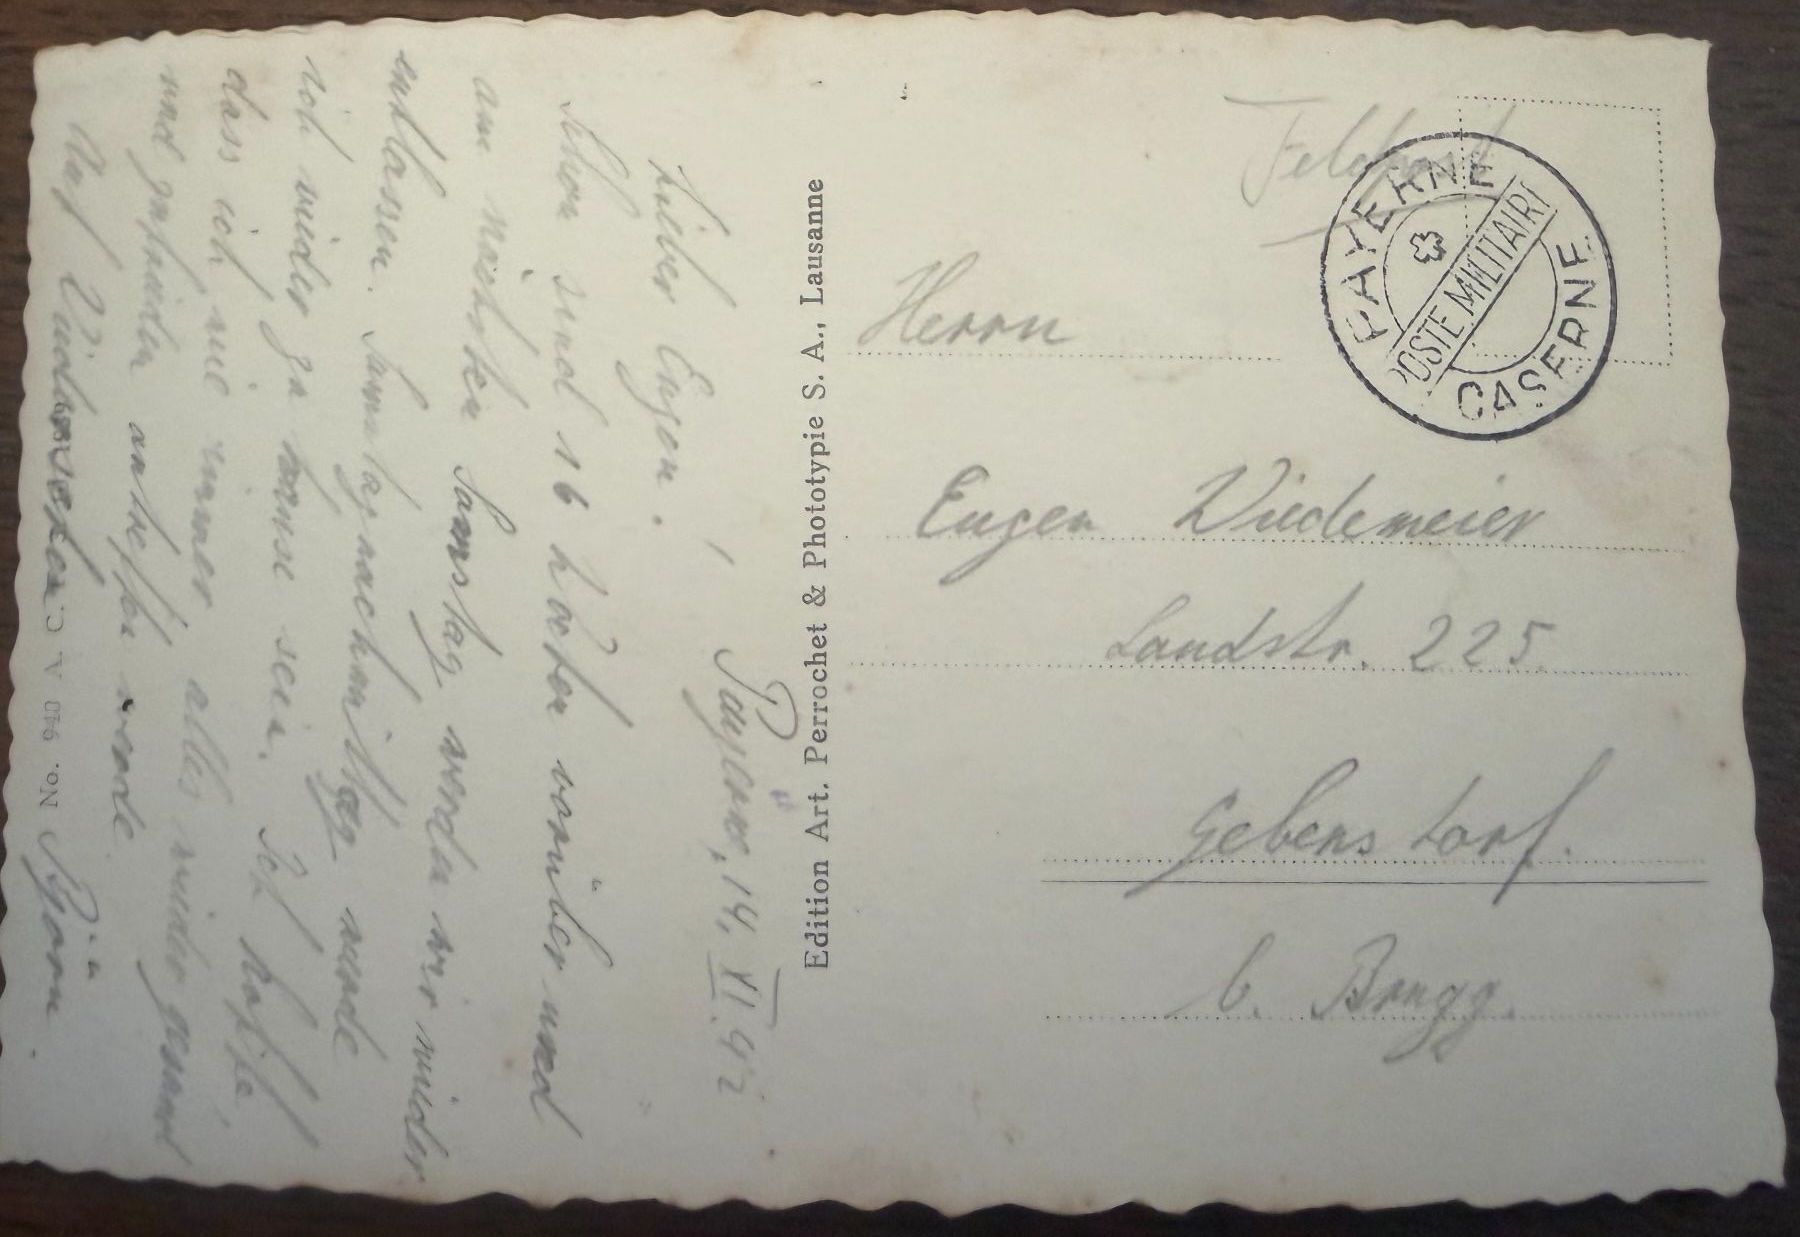 Payerne, 14. XI. 42
Lieber Eugen.
Schon sind 16 Wochen vorüber und
am nächsten Samstag werden wir wieder
entlassen. Samstagnachmittag werde
ich wieder zu hause sein. Ich hoffe,
dass ich wie immer alles wieder gesund
und gefunden antreffen werde.
Auf Wiedersehen Björn.
No. 940 A. C.
Edition Art. Perrochet & Phototypie S. A., Lausanne
Feldpost
PAYERNE
POSTE MILITAIRE
CASERNE
Herrn
Eugen Wiedemeier
Landstr. 225
Gebenstorf.
b. Brugg.